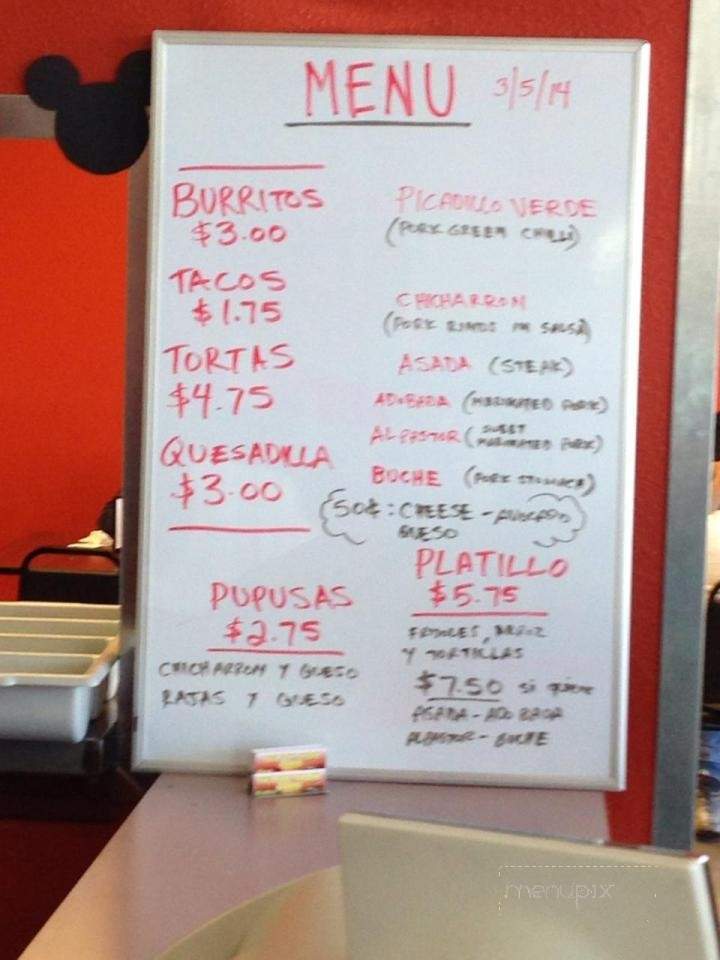 MENU 3/5/14
BURRITOS
$3.00
TACOS
$1.75
TORTAS
$4.75
QUESADILLA
$3.00
PICADILLO VERDE
(PORK GREEN CHILLI)
CHICHARRON
(PORK RINDS IN SALSA)
ASADA (STEAK)
ADOBADA (MARINATED PORK)
ALPASTOR (SWEET
MARINATED PORK)
BUCHE (PORK STOMACH)
50¢: CHEESE - AVOCADO
QUESO
PUPUSAS
$2.75
CHICHARRON Y QUESO
RAJAS Y QUESO
PLATILLO
$5.75
FRIJOLES, ARROZ
Y TORTILLAS
$7.50 si quiere
ASADA - ADOBADA
ALPASTOR - BUCHE
menupix